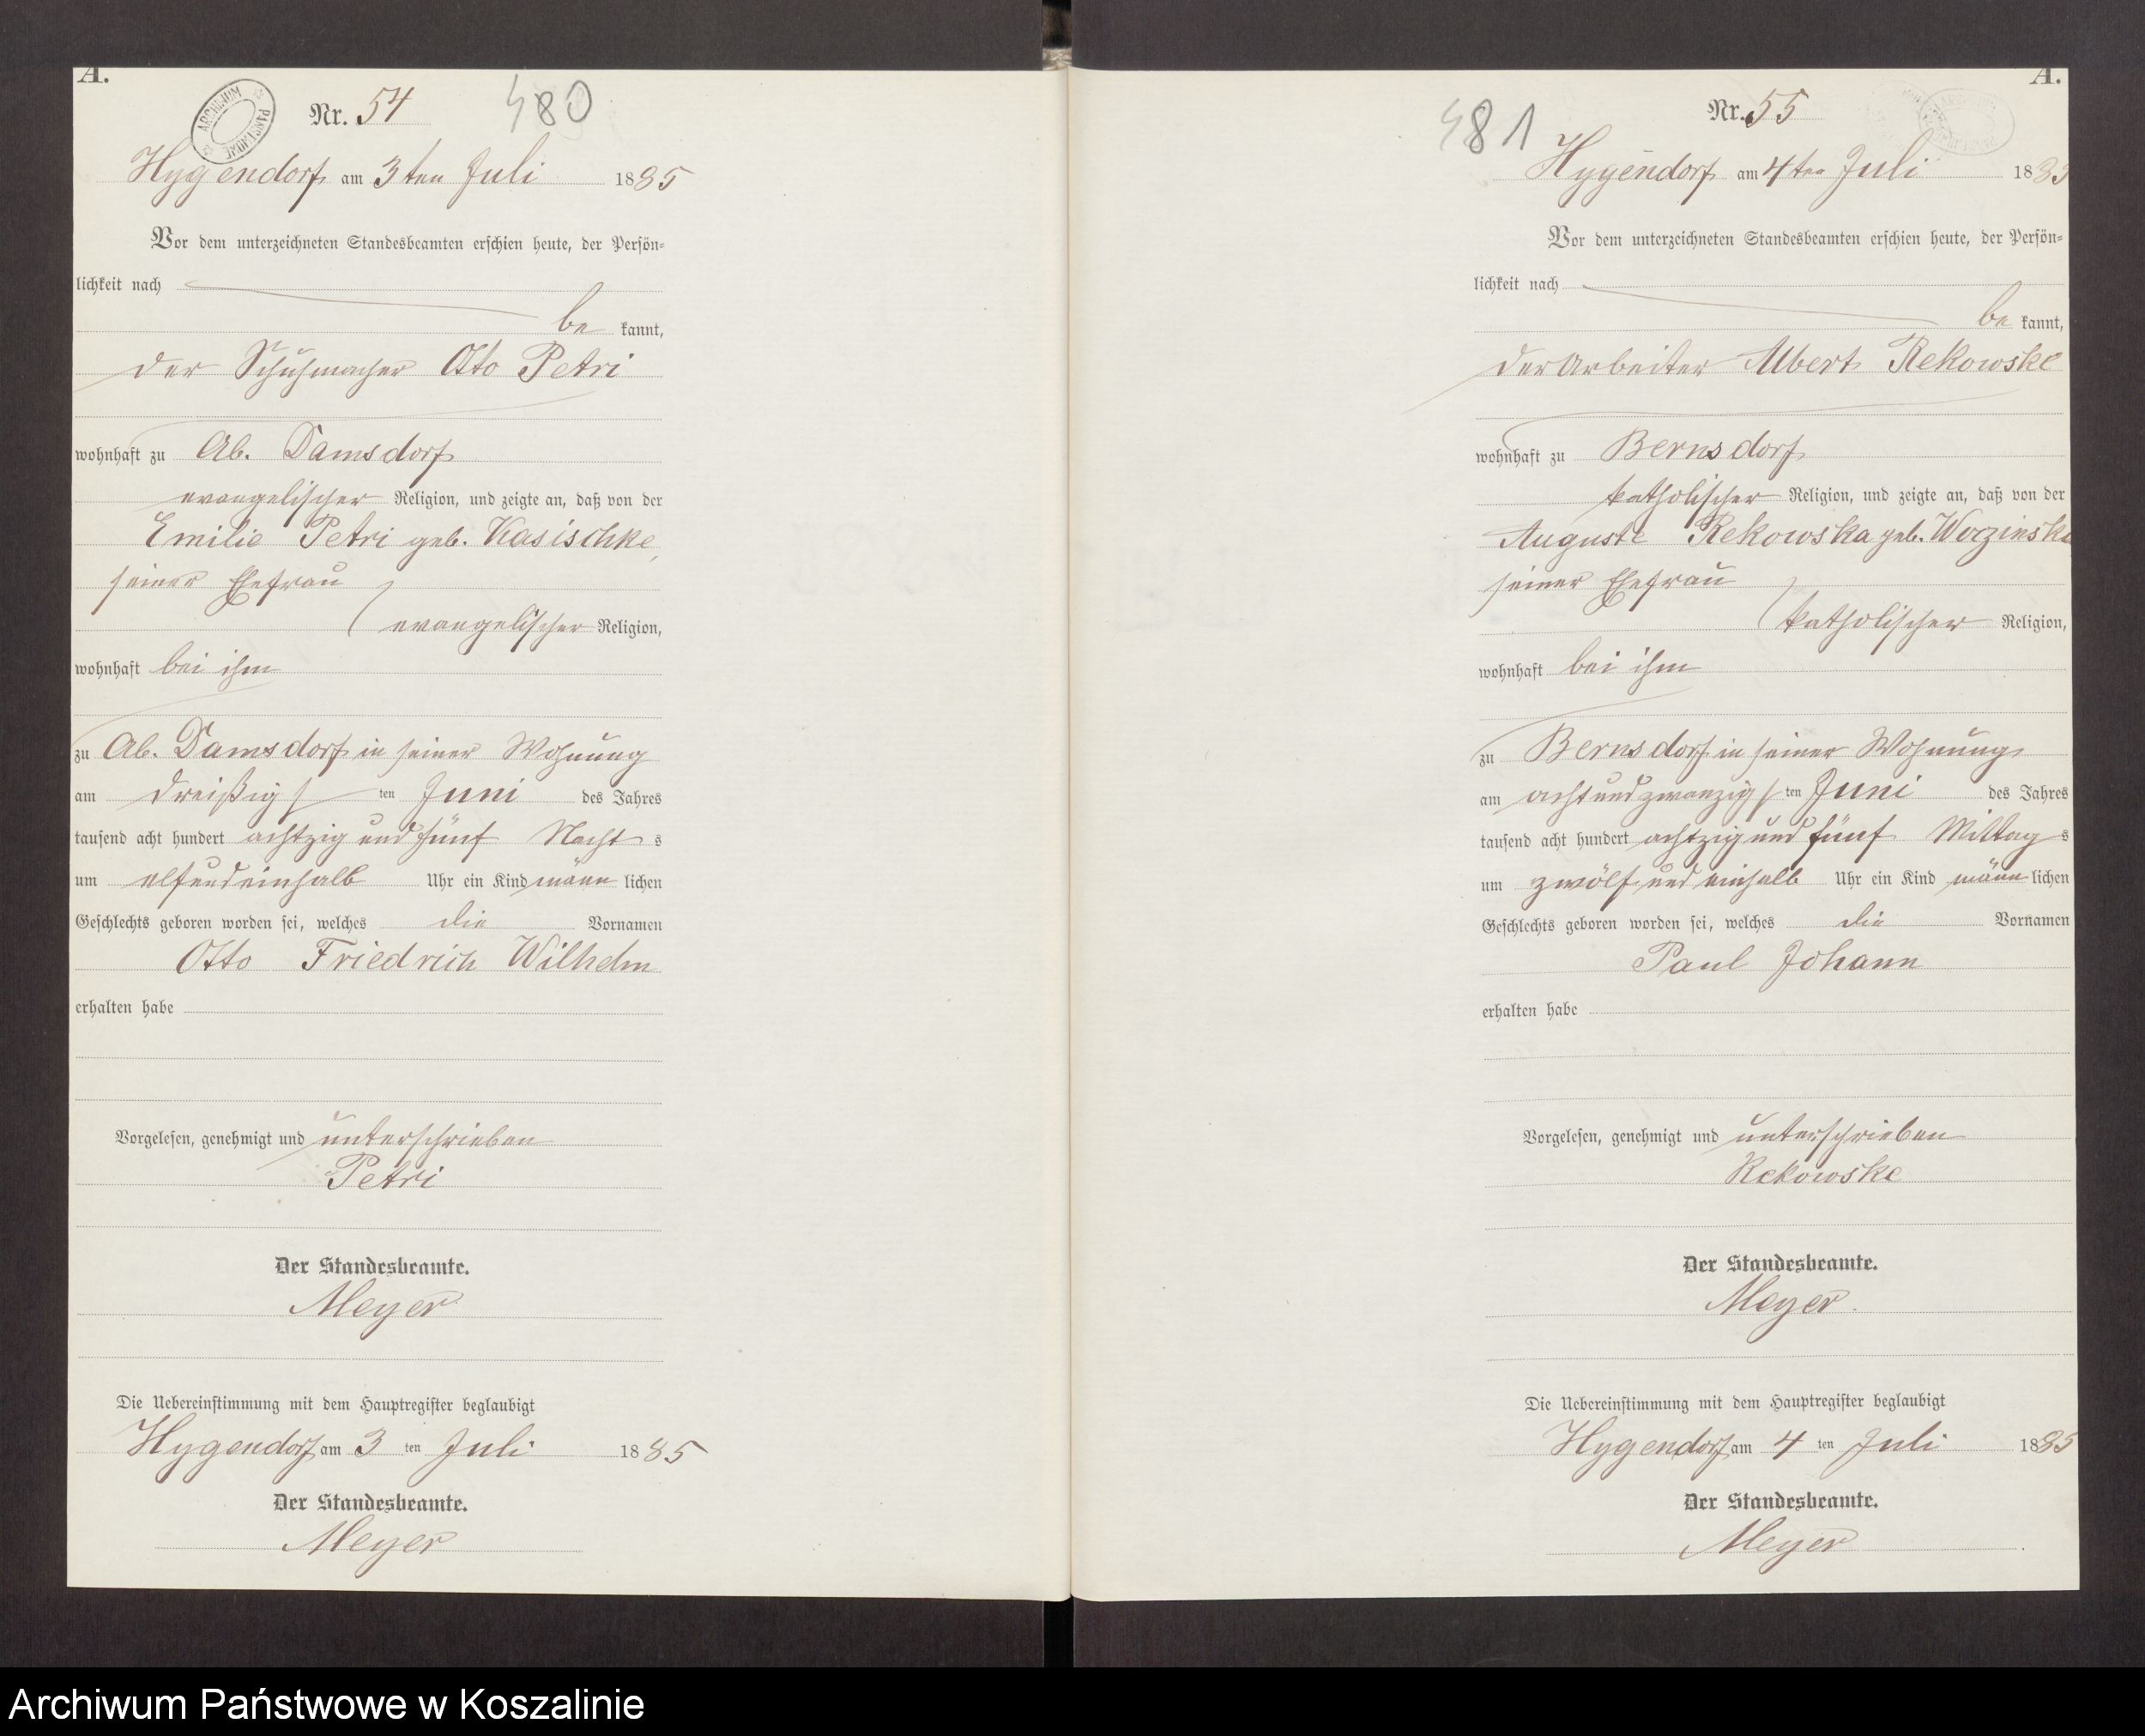 A.
ARCHIWUM PAŃSTWOWE
Nr. 54
480
Hygendorf am 3ten Juli 1885
Vor dem unterzeichneten Standesbeamten erschien heute, der Persön-
lichkeit nach
be kannt,
der Schuhmacher Otto Petri
wohnhaft zu Ab. Damsdorf
evangelischer Religion, und zeigte an, daß von der
Emilie Petri geb. Kasischke,
seiner Ehefrau
evangelischer Religion,
wohnhaft bei ihm
zu Ab. Damsdorf in seiner Wohnung
am dreißig ten Juni des Jahres
tausend acht hundert achtzig und fünf Nacht s
um elfundeinhalb Uhr ein Kind männ lichen
Geschlechts geboren worden sei, welches die Vornamen
Otto Friedrich Wilhelm
erhalten habe
Vorgelesen, genehmigt und unterschrieben
Petri
Der Standesbeamte.
Meyer
Die Uebereinstimmung mit dem Hauptregister beglaubigt
Hygendorf am 3 ten Juli 1885
Der Standesbeamte.
Meyer
A.
481
Nr. 55
Hygendorf am 4ten Juli 1885
Vor dem unterzeichneten Standesbeamten erschien heute, der Persön-
lichkeit nach
be kannt,
der Arbeiter Albert Rekowske
wohnhaft zu Bernsdorf
katholischer Religion, und zeigte an, daß von der
Auguste Rekowska geb. Worzinska
seiner Ehefrau
katholischer Religion,
wohnhaft bei ihm
zu Bernsdorf in seiner Wohnung
am achtundzwanzig ten Juni des Jahres
tausend acht hundert achtzig und fünf Mittag s
um zwölf und einhalb Uhr ein Kind männ lichen
Geschlechts geboren worden sei, welches die Vornamen
Paul Johann
erhalten habe
Vorgelesen, genehmigt und unterschrieben
Rekowske
Der Standesbeamte.
Meyer.
Die Uebereinstimmung mit dem Hauptregister beglaubigt
Hygendorf am 4 ten Juli 1885
Der Standesbeamte.
Meyer
Archiwum Państwowe w Koszalinie